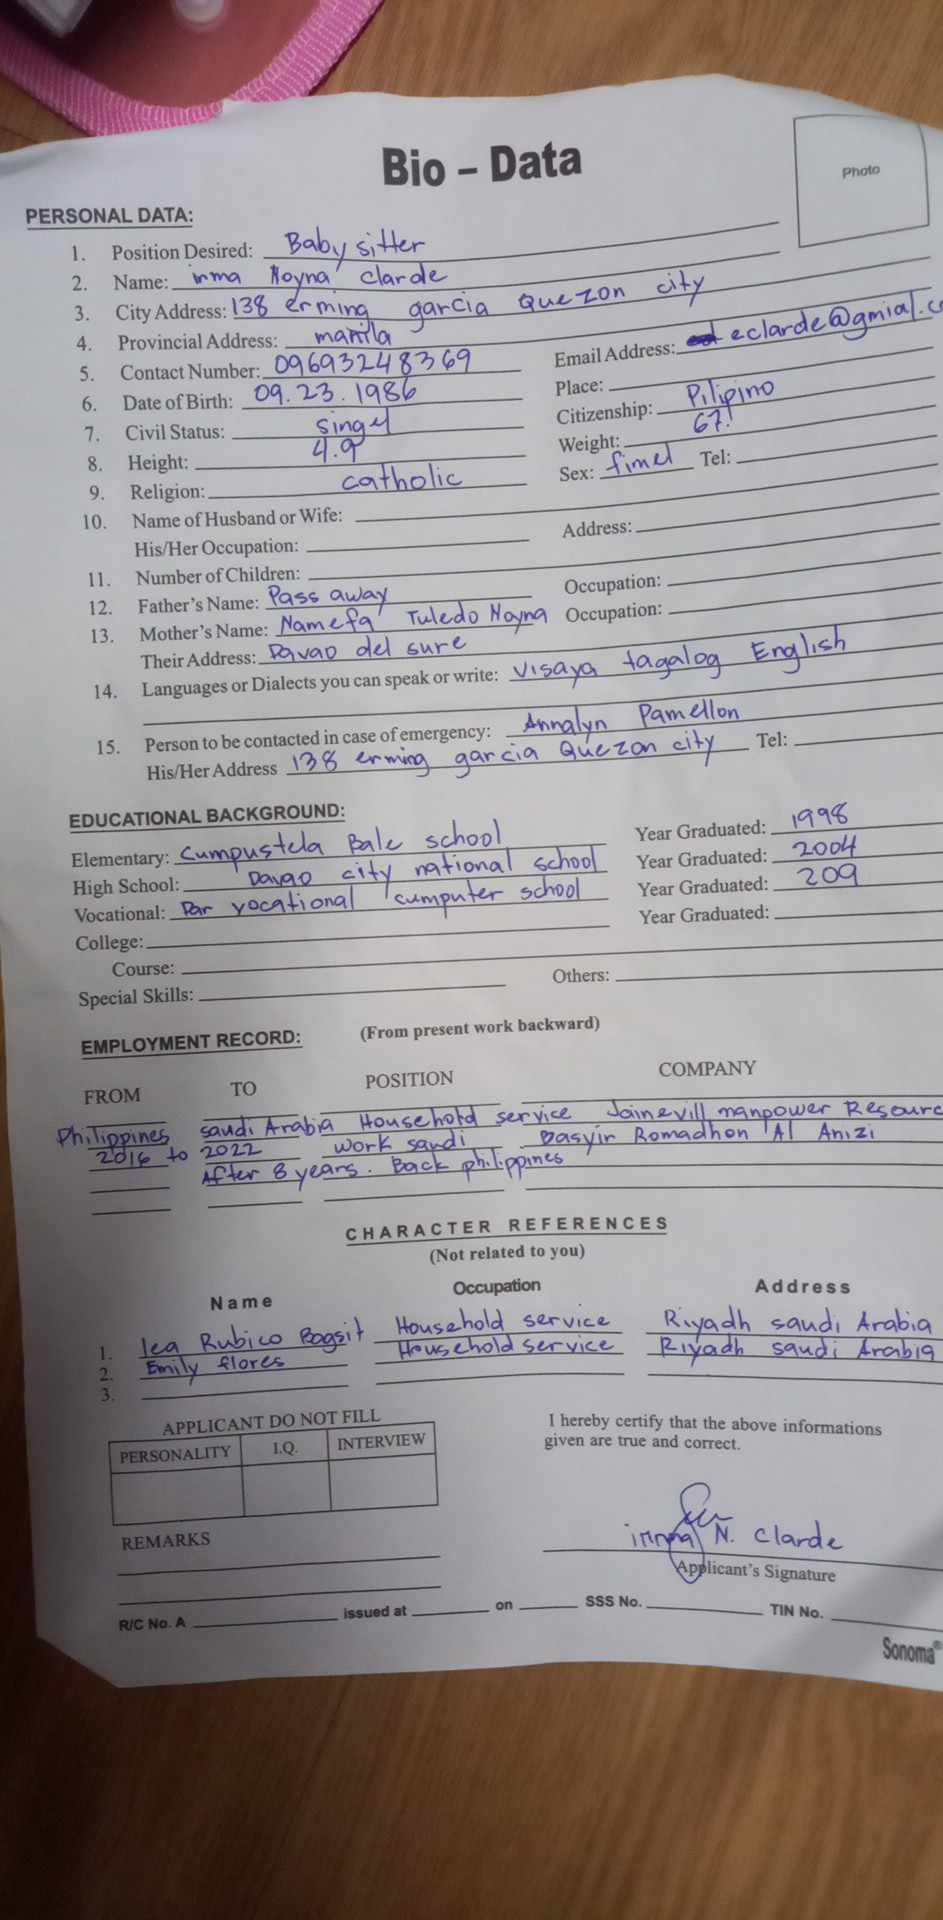 Bio – Data
Photo
PERSONAL DATA:
1. Position Desired: Baby sitter
2. Name: irma Noyna clarde
3. City Address: 138 erming garcia Quezon city
4. Provincial Address: manila
Email Address: eclarde@gmial.c
5. Contact Number: 09693248369
Place:
6. Date of Birth: 09.23.1986
Citizenship: Pilipino
7. Civil Status: singel
Weight: 67.
8. Height: 4.9
Sex: fimel Tel:
9. Religion: catholic
10. Name of Husband or Wife:
Address:
His/Her Occupation:
11. Number of Children:
12. Father's Name: Pass away Occupation:
13. Mother's Name: Namefa Tuledo Noyna Occupation:
Their Address: Davao del sure
14. Languages or Dialects you can speak or write: Visaya tagalog English
15. Person to be contacted in case of emergency: Annalyn Pamellon
His/Her Address 138 erming garcia Quezon city Tel:
EDUCATIONAL BACKGROUND:
Elementary: Cumpustela Bale school Year Graduated: 1998
High School: Davao city national school Year Graduated: 2004
Vocational: Dar vocational cumputer school Year Graduated: 209
College: Year Graduated:
Course:
Special Skills: Others:
EMPLOYMENT RECORD: (From present work backward)
FROM TO POSITION COMPANY
Philippines saudi Arabia Household service Jainevill manpower Resourc
2016 to 2022 work saudi Basyir Romadhon Al Anizi
After 8 years. Back philippines
CHARACTER REFERENCES
(Not related to you)
Name Occupation Address
1. lea Rubico Bagsit Household service Riyadh saudi Arabia
2. Emily flores Household service Riyadh saudi Arabia
3.
APPLICANT DO NOT FILL
PERSONALITY I.Q. INTERVIEW
I hereby certify that the above informations
given are true and correct.
REMARKS
irma N. Clarde
Applicant's Signature
R/C No. A issued at on SSS No. TIN No.
Sonoma®